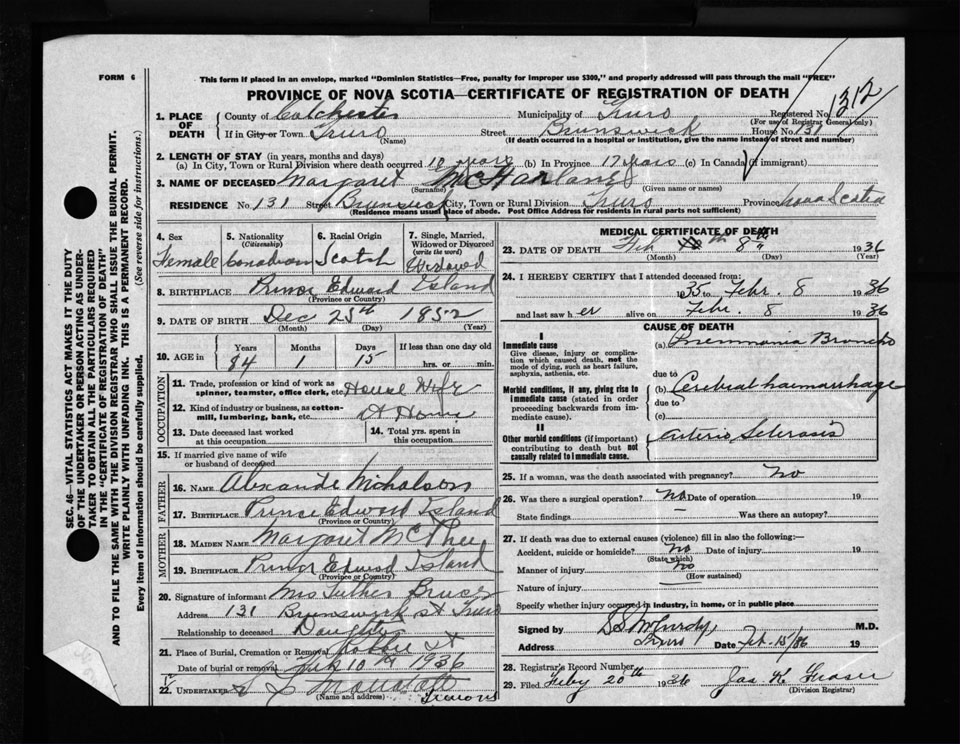 FORM 6
This form if placed in an envelope, marked "Dominion Statistics—Free, penalty for improper use $300," and properly addressed will pass through the mail "FREE"
PROVINCE OF NOVA SCOTIA—CERTIFICATE OF REGISTRATION OF DEATH
1. PLACE OF DEATH County of Colchester Municipality of Truro Registered No. 1312
(For use of Registrar General only)
If in City or Town Truro Street Brunswick House No. 131
(Name) (If death occurred in hospital or institution, give the name instead of street and number)
2. LENGTH OF STAY (in years, months and days)
(a) In City, Town or Rural Division where death occurred 10 years (b) In Province 17 years (c) In Canada (if immigrant)
3. NAME OF DECEASED Margaret McFarlane
(Surname) (Given name or names)
RESIDENCE No. 131 Street Brunswick City, Town or Rural Division Truro Province Nova Scotia
(Residence means usual place of abode. Post Office Address for residents in rural parts not sufficient)
4. Sex Female
5. Nationality (Citizenship) Canadian
6. Racial Origin Scotch
7. Single, Married, Widowed or Divorced (write the word) Widowed
8. BIRTHPLACE Prince Edward Island
(Province or Country)
9. DATE OF BIRTH Dec 25th 1852
(Month) (Day) (Year)
10. AGE in Years Months Days If less than one day old
84 1 15 hrs. or min.
OCCUPATION
11. Trade, profession or kind of work as spinner, teamster, office clerk, etc. House Wife
12. Kind of industry or business, as cotton-mill, lumbering, bank, etc. At Home
13. Date deceased last worked at this occupation
14. Total yrs. spent in this occupation
15. If married give name of wife or husband of deceased
FATHER
16. NAME Alexande Nicholson
17. BIRTHPLACE Prince Edward Island
(Province or Country)
MOTHER
18. MAIDEN NAME Margaret McPhee
19. BIRTHPLACE Prince Edward Island
(Province or Country)
20. Signature of informant Mrs Luther Bruce
Address 131 Brunswick St Truro
Relationship to deceased Daughter
21. Place of Burial, Cremation or Removal
Date of burial or removal Feb 10th 1936
22. UNDERTAKER
(Name and address)
MEDICAL CERTIFICATE OF DEATH
23. DATE OF DEATH Feb 8th 1936
(Month) (Day) (Year)
24. I HEREBY CERTIFY that I attended deceased from:
1935 to Febr. 8 1936
and last saw her alive on Febr. 8 1936
CAUSE OF DEATH
I
Immediate cause
Give disease, injury or complication which caused death, not the mode of dying, such as heart failure, asphyxia, asthenia, etc.
(a) Pneumonia Broncho
due to
Morbid conditions, if any, giving rise to immediate cause (stated in order proceeding backwards from immediate cause).
(b) Cerebral haemorrhage
due to
(c)
II
Other morbid conditions (if important) contributing to death but not causally related to immediate cause.
Arterio Sclerosis
25. If a woman, was the death associated with pregnancy? No
26. Was there a surgical operation? No Date of operation 19
State findings Was there an autopsy?
27. If death was due to external causes (violence) fill in also the following:—
Accident, suicide or homicide? No Date of injury 19
(State which)
Manner of injury no
(How sustained)
Nature of injury
Specify whether injury occurred in industry, in home, or in public place
Signed by M.D.
Address Truro Date Feb. 15/36 19
28. Registrar's Record Number
29. Filed Feby 20th 1936 Jas K Fraser
(Division Registrar)
SEC. 46—VITAL STATISTICS ACT MAKES IT THE DUTY
OF THE UNDERTAKER OR PERSON ACTING AS UNDER-
TAKER TO OBTAIN ALL THE PARTICULARS REQUIRED
IN THE "CERTIFICATE OF REGISTRATION OF DEATH"
AND TO FILE THE SAME WITH THE DIVISION REGISTRAR WHO SHALL ISSUE THE BURIAL PERMIT.
WRITE PLAINLY WITH UNFADING INK. THIS IS A PERMANENT RECORD.
Every item of information should be carefully supplied. (See reverse side for instructions.)